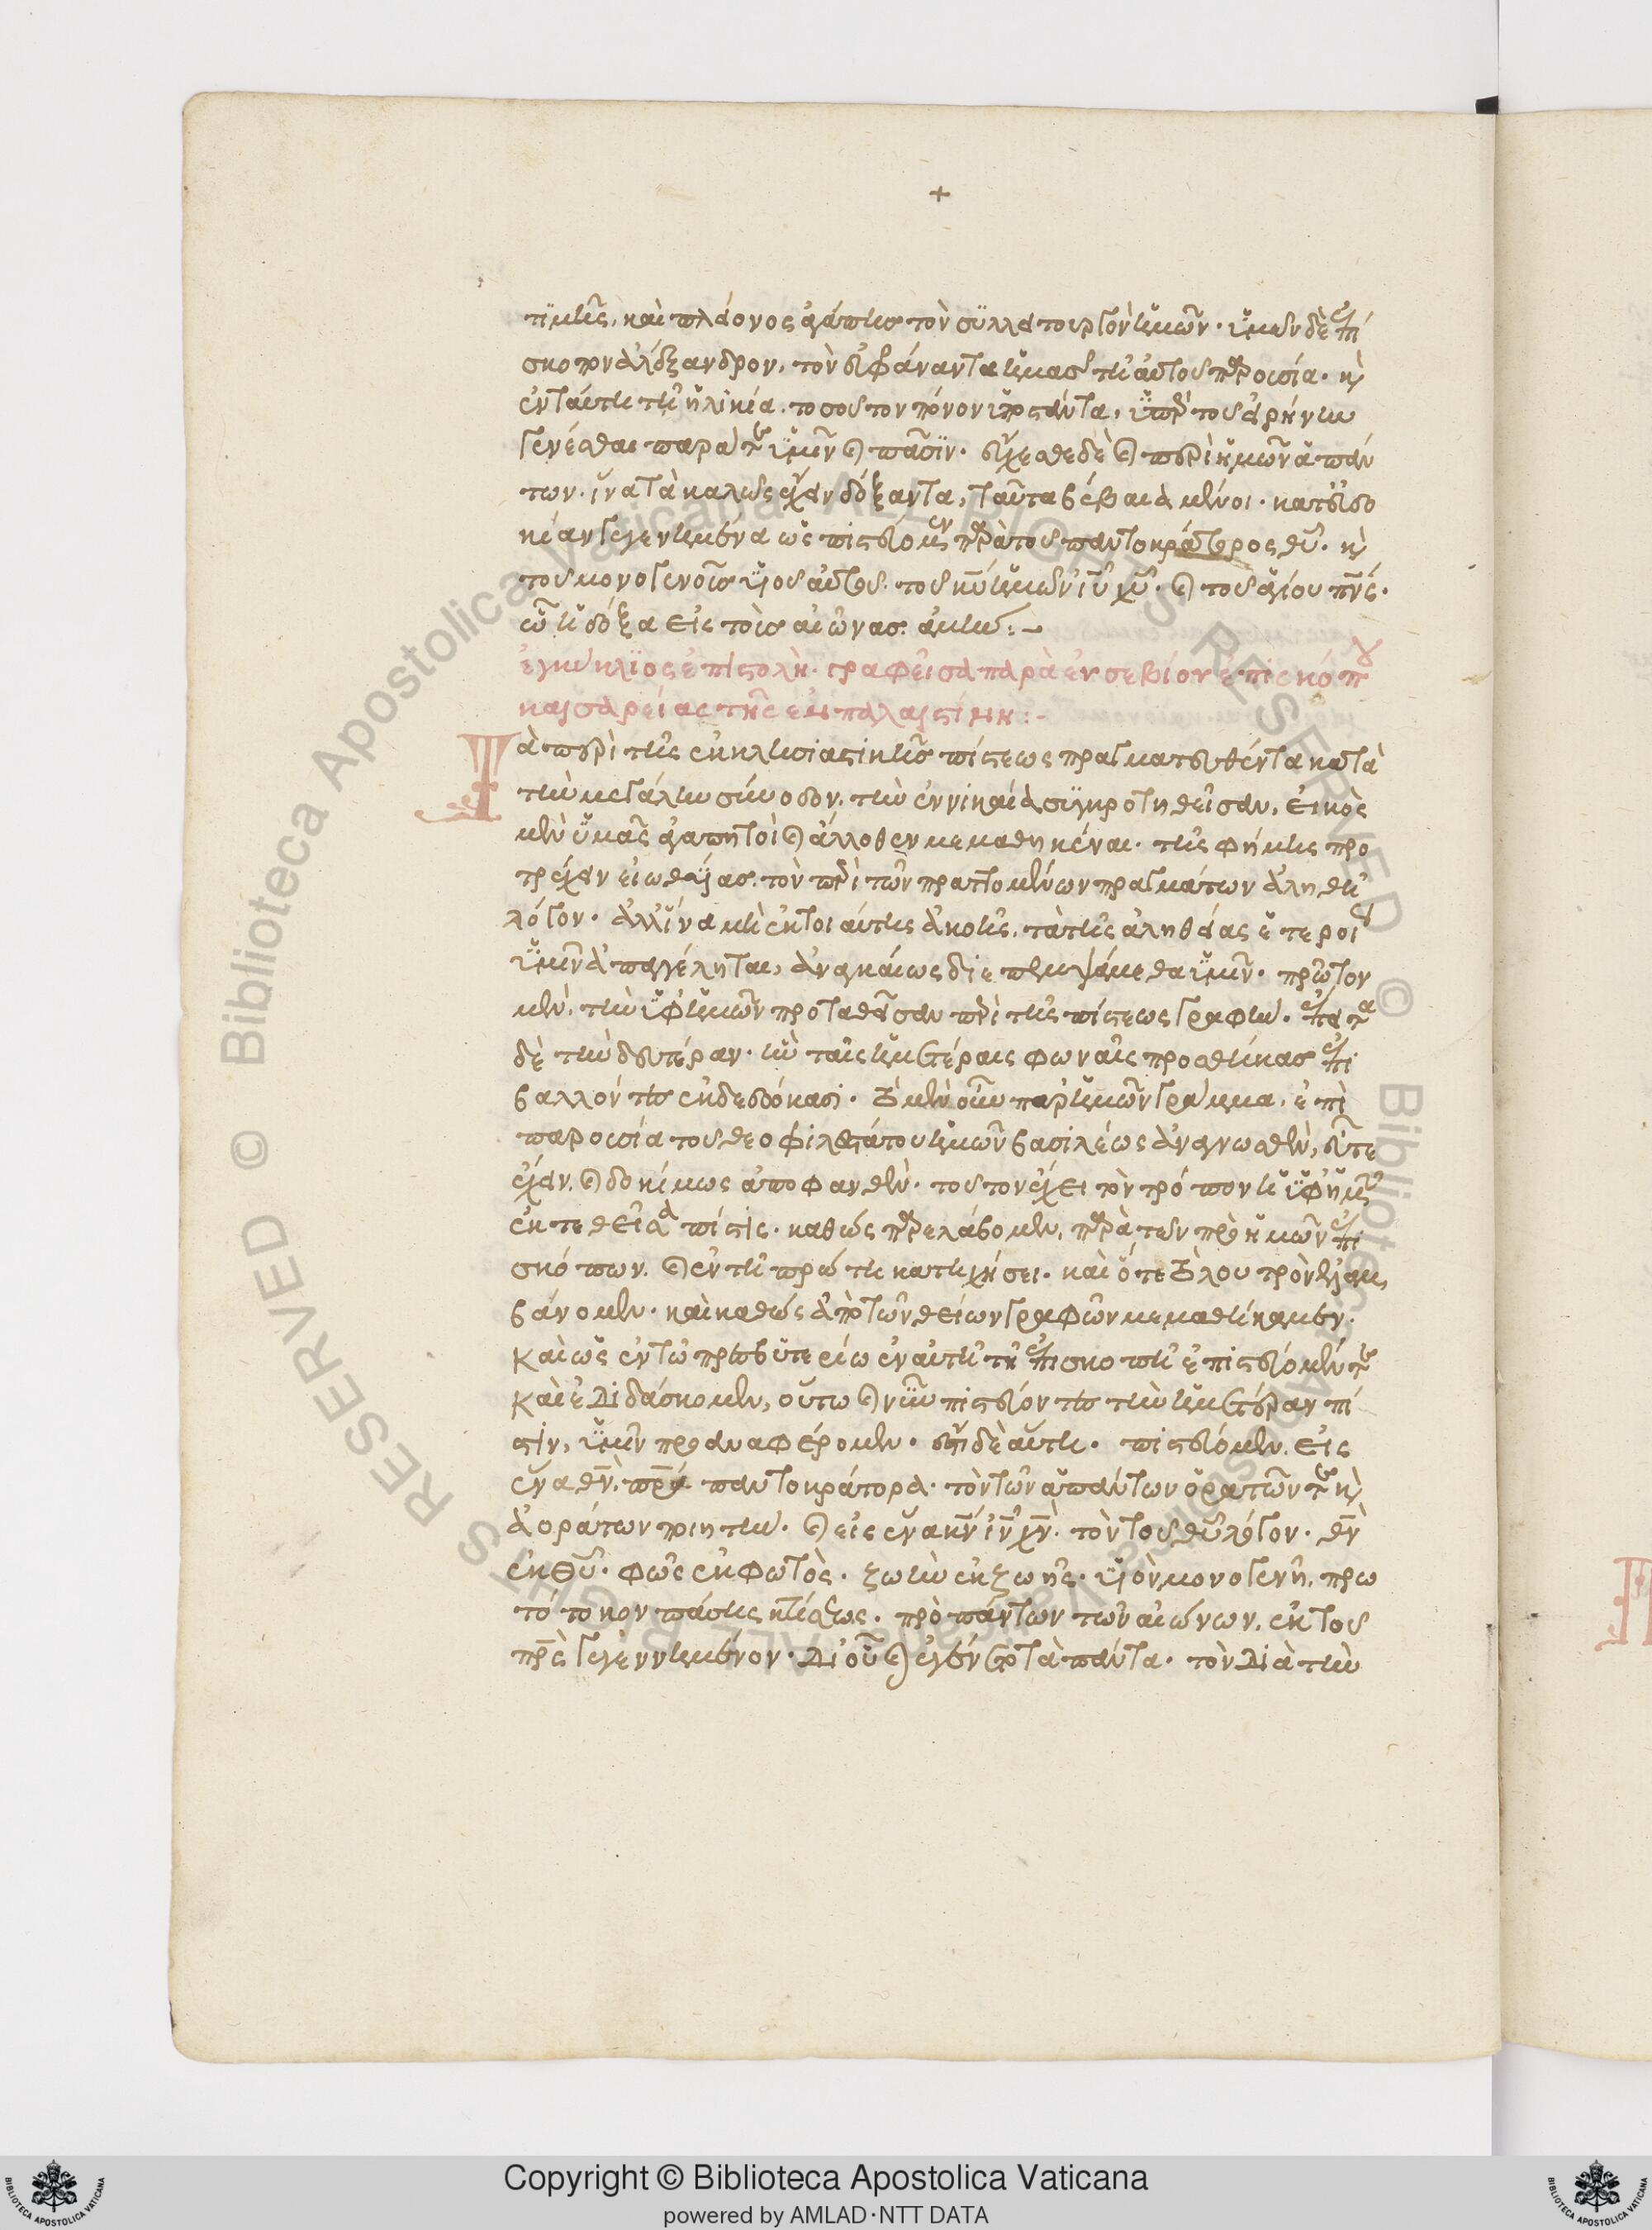 +
τιμῆς, καὶ πλείονος ἀγάπης τὸν συλλειτουργὸν ἡμῶν· ὑμῶν δὲ ἐπί
σκοπον ἀλέξανδρον, τὸν εὐφράναντα ἡμᾶς τῇ αὐτοῦ παρουσία· κ
ἐν ταύτη τῆ ἡλικία τοσοῦτον πόνον ὑποστάντα, ὑπὲρ τοῦ εἰρήνην
γενέσθαι παρὰ τ ὑμῖν καὶ πᾶσιν· εὔχεσθε δὲ καὶ περὶ ἡμῶν ἁπάν
των· ἵνα τὰ καλῶς ἔχειν δόξαντα, ταῦτα βέβαια μένοι· κατ' εὐδο
κίαν γεγενημένα ὡς πιστεύομεν παρὰ τοῦ παντοκράτορος θυ· κ
τοῦ μονογενοῦς υἱοῦ αὐτοῦ τοῦ κυ ἡμῶν ιυ χυ· καὶ τοῦ ἁγίου πνς·
ὧ ἡ δόξα εἰς τοὺς αἰῶνας ἀμήν:-
ἐγκύκλιος ἐπιστολὴ· γραφεῖσα παρὰ εὐσεβίου ἐπισκόπου
καισαρείας τῆς ἐν παλαιστίνη:-
Τὰ περὶ τῆς ἐκκλησιαστικῆς πίστεως πραγματευθέντα κατὰ
τὴν μεγάλην σύνοδον, τὴν ἐν νικαία συγκροτηθεῖσαν, εἰκὸς
μὲν ὑμᾶς ἀγαπητοὶ καὶ ἄλλοθεν μεμαθηκέναι· τῆς φήμης προ
τρέχειν εἰωθυίας τὸν περὶ τῶν πραττομένων πραγμάτων ἀληθῆ
λόγον· ἀλλ' ἵνα μὴ ἐκ τοιαύτης ἀκοῆς, τὰ τῆς ἀληθείας ἑτεροι
ὑμῖν ἀπαγγέληται, ἀναγκαίως διεπεμψάμεθα ὑμῖν· πρῶτον
μὲν, τὴν ὑφ' ἡμῶν προταθεῖσαν περὶ τῆς πίστεως γραφήν· ἔπειτα
δὲ τὴν δευτέραν· ἣν ταῖς ἡμετέραις φωναῖς προσθήκας ἐπι
βαλλόντες ἐκδεδώκασι· τὸ μὲν οὖν παρ' ἡμῶν γράμμα, ἐπὶ
παρουσία τοῦ θεοφιλεστάτου ἡμῶν βασιλέως ἀναγνωσθὲν, εὖ τε
ἔχειν, καὶ δοκίμως ἀποφανθὲν· τοῦτον ἔχει τὸν τρόπον ἡ ὑφ' ἡμῶν
ἐκτεθεῖσα πίστις· καθὼς παρελάβομεν, παρὰ τῶν πρὸ ἡμῶν ἐπι
σκόπων, καὶ ἐν τῆ πρώτη κατηχήσει· καὶ ὅτε τὸ λουτρὸν ἐλαμ
βάνομεν· καὶ καθὼς ἀπὸ τῶν θείων γραφῶν μεμαθήκαμεν·
καὶ ὡς ἐν τῶ πρεσβυτερίω ἐν αὐτῆ τῆ ἐπισκοπῆ ἐπιστεύομέν τε
καὶ ἐδιδάσκομεν, οὕτω καὶ νῦν πιστεύοντες τὴν ἡμετέραν πί
στιν, ὑμῖν προσαναφέρομεν· ἔστι δὲ αὕτη· πιστεύομεν εἰς
ἕνα θν, πρα παντοκράτορα· τὸν τῶν ἁπάντων ὁρατῶν τε κ
ἀοράτων ποιητήν· καὶ εἰς ἕνα κν ιν χν· τὸν τοῦ θυ λόγον· θν
ἐκ θυ· φῶς ἐκ φωτὸς· ζωὴν ἐκ ζωῆς· υἱὸν μονογενῆ, πρω
τότοκον πάσης κτίσεως· πρὸ πάντων τῶν αἰώνων, ἐκ τοῦ
πρς γεγεννημένον· δι' οὗ καὶ ἐγένετο τὰ πάντα· τὸν διὰ τὴν
Copyright © Biblioteca Apostolica Vaticana
powered by AMLAD·NTT DATA